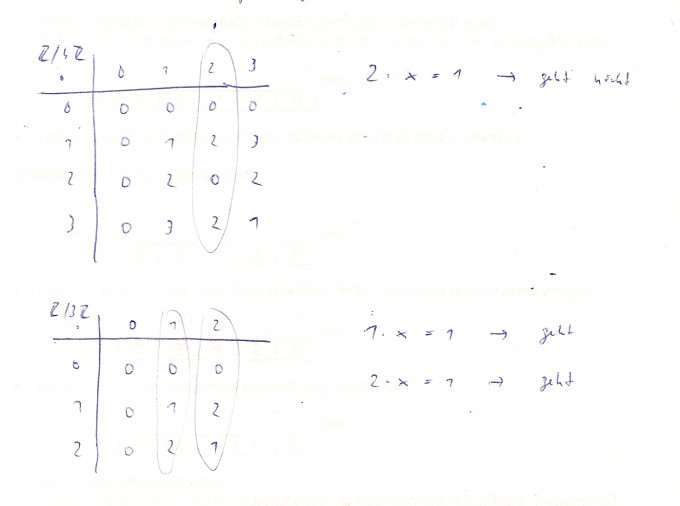 ℤ/4ℤ
· 0 1 2 3
0 0 0 0 0
1 0 1 2 3
2 0 2 0 2
3 0 3 2 1
2 · x = 1 → geht nicht
ℤ/3ℤ
· 0 1 2
0 0 0 0
1 0 1 2
2 0 2 1
1 · x = 1 → geht
2 · x = 1 → geht